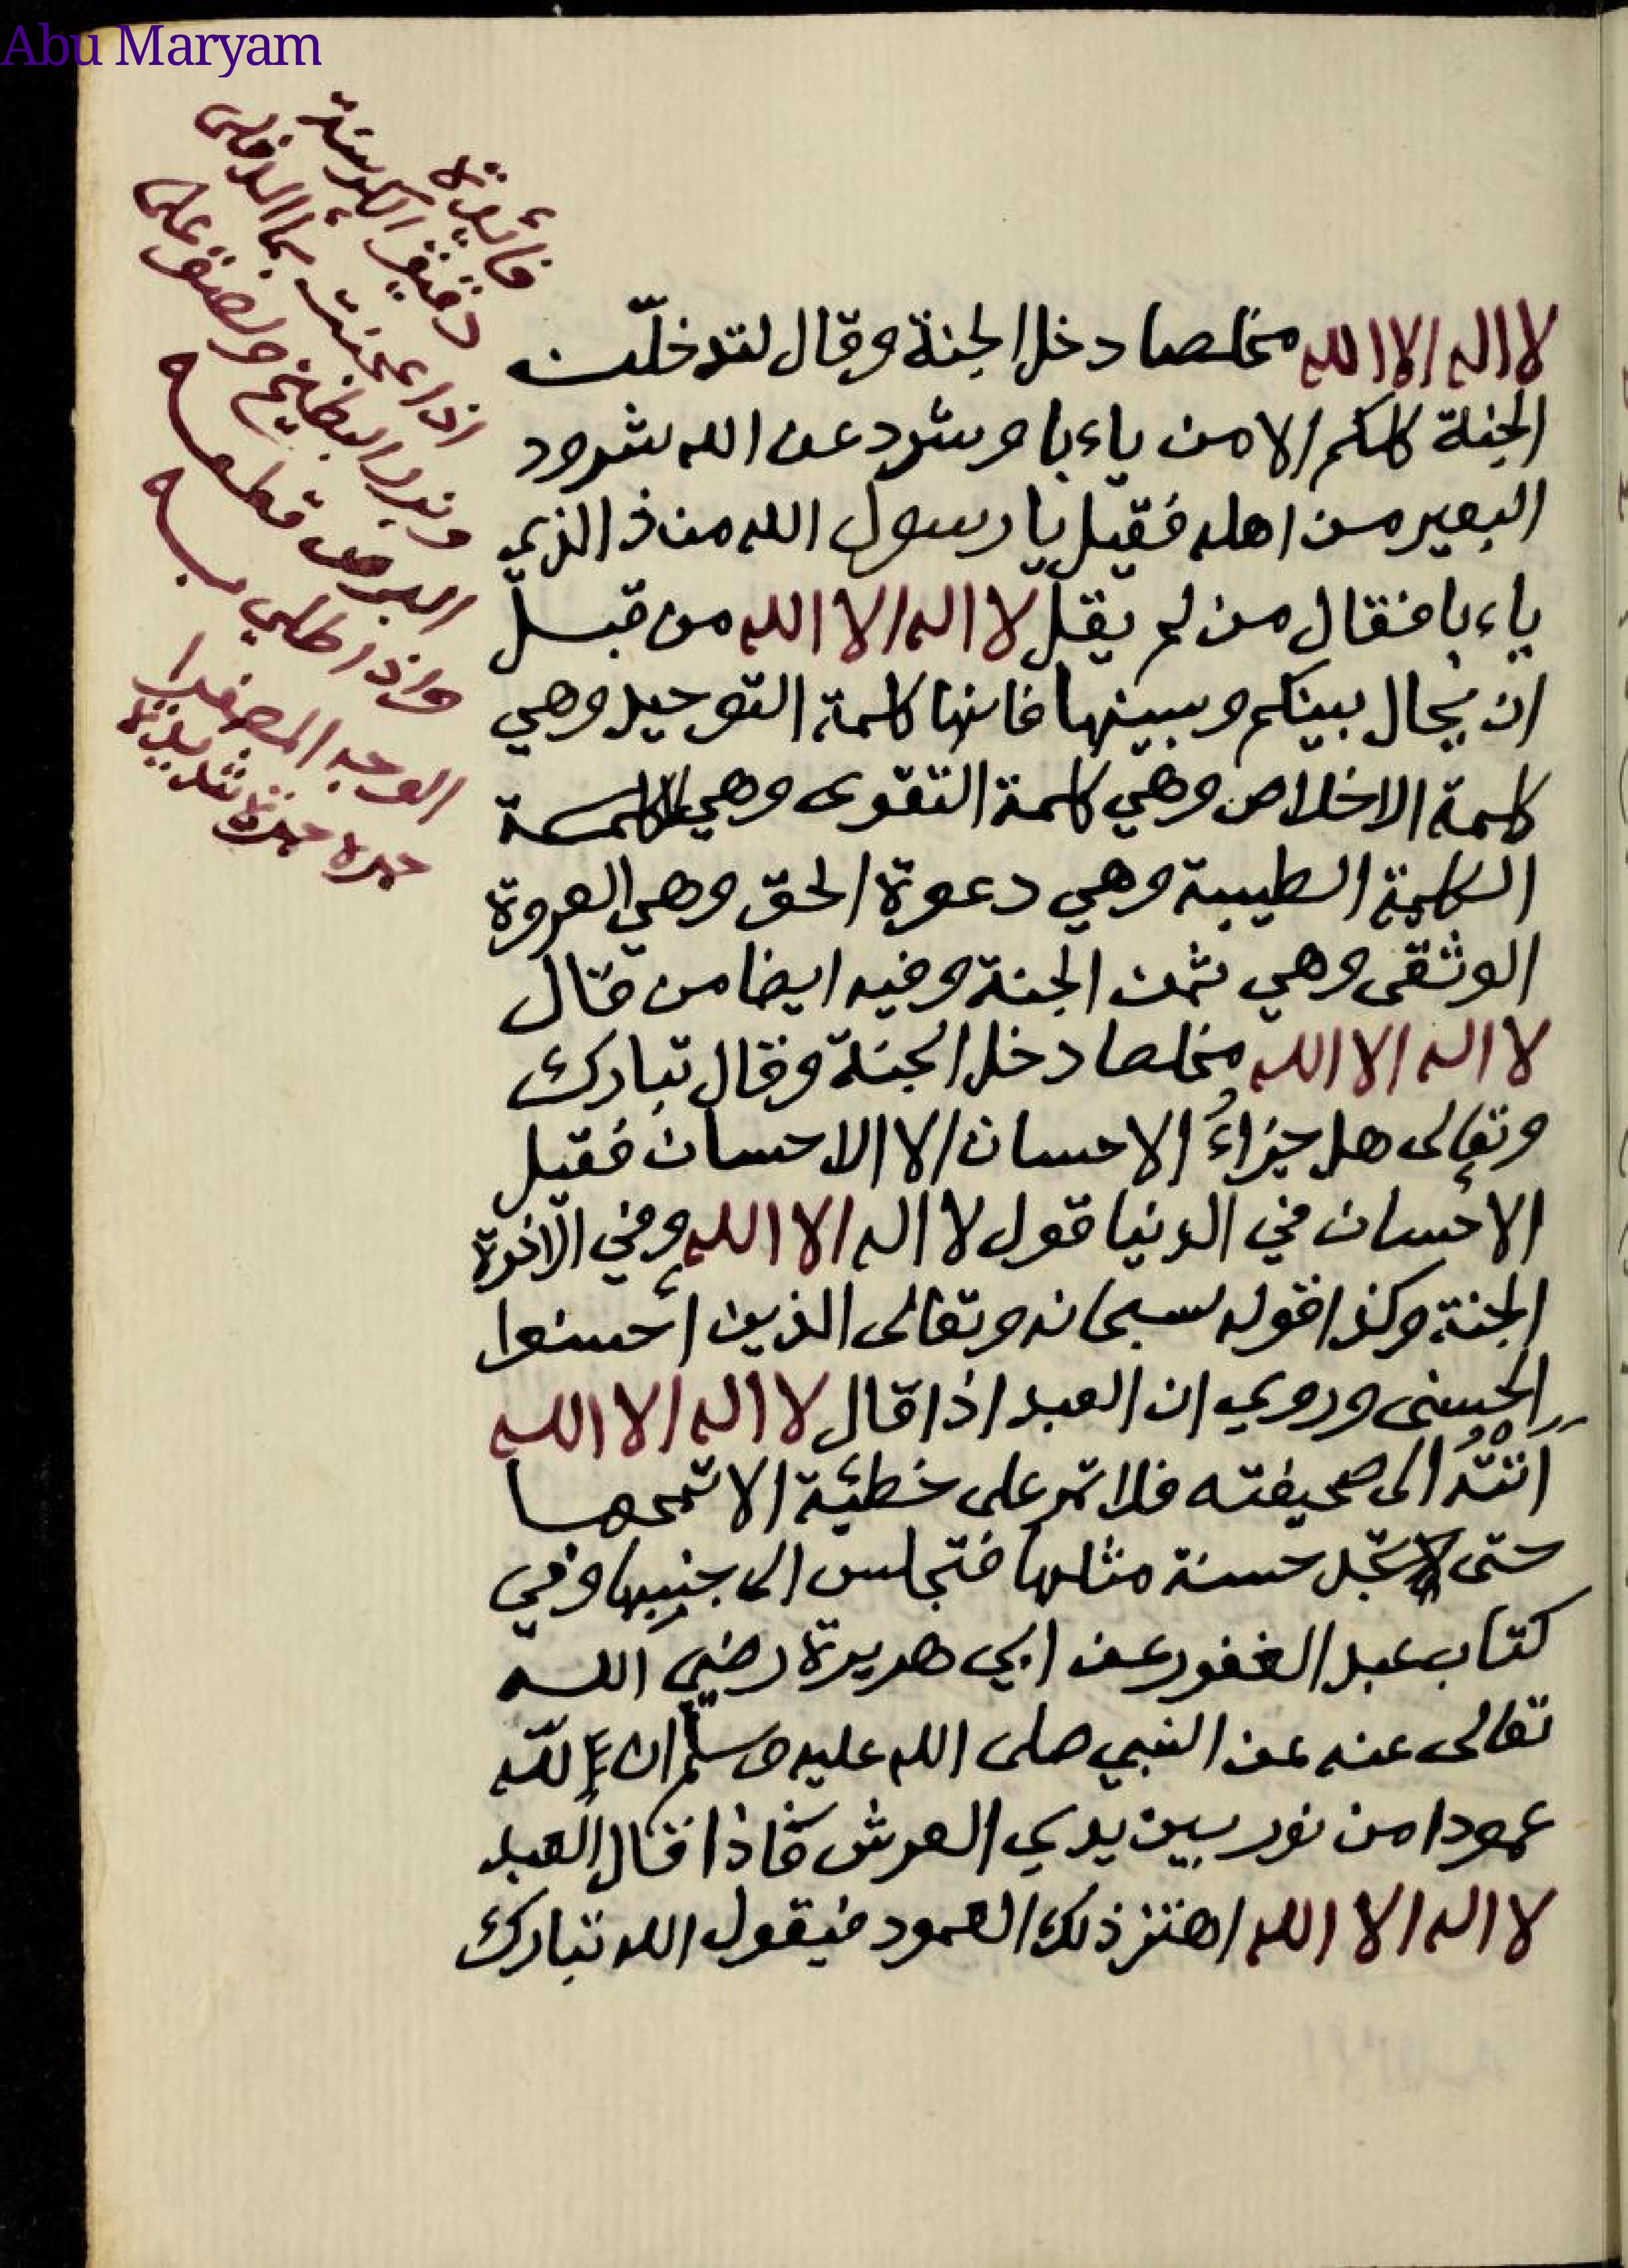 Abu Maryam
فائدة
دقيق الكرسنة
اذا عجنت بماء الدفلى
وبزر البطيخ ولصق على
البرص قطعه
واذا طلي به
الوجه المصفر
حمره حمرة شديدة
لا اله الا الله مخلصا دخل الجنة وقال لتدخلّن
الجنة كلكم الا من ياءبا وشرد عن الله شرود
البعير من اهله فقيل يا رسول الله من ذ الذي
ياءبا فقال من لم يقل لا اله الا الله من قبل
ان يحال بينكم وبينها فانها كلمة التوحيد وهي
كلمة الاخلاص وهي كلمة التقوى وهي الكلمة
الكلمة الطيبة وهي دعوة الحق وهي العروة
الوثقى وهي ثمن الجنة وفيه ايضا من قال
لا اله الا الله مخلصا دخل الجنة وقال تبارك
وتعالى هل جزاءُ الاحسان الا الاحسان فقيل
الاحسان في الدنيا قول لا اله الا الله وفي الاخرة
الجنة وكذا قوله سبحانه وتعالى الذين أحسنوا
الحسنى وروي ان العبد اذا قال لا اله الا الله
اتت الى صحيفته فلا تمر على خطئية الا تمحها
حتى تجد حسنة مثلها فتجلس الى جنبها وفي
كتاب عبد الغفور عن ابي هريرة رضي الله
تعالى عنه عن النبي صلى الله عليه وسلم ان لله
عمودا من نور بين يدي العرش فاذا قال العبد
لا اله الا الله اهتز ذلك العمود فيقول الله تبارك